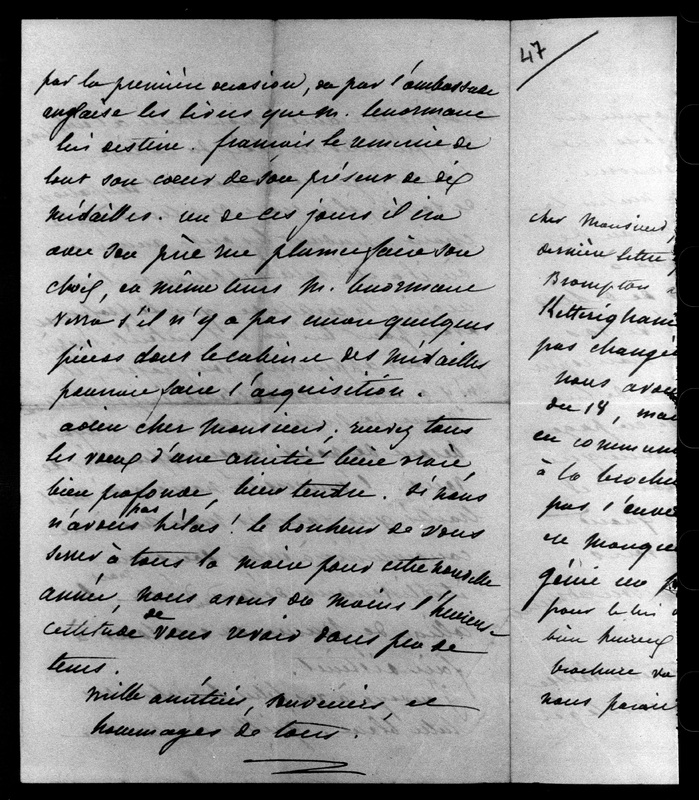 par la première occasion, ou par l'ambassade
anglaise les livres que M. Lenormant
lui destine. françois le remercie de
tout son coeur de son présent de dix
médailles. un de ces jours il ira
avec son père faire son
choix, en même tems M. Lenormant
verra s'il n'y a pas encore quelques
pièces dont le cabinet des médailles
pourrait faire l'acquisition.
adieu cher Monsieur, recevez tous
les voeux d'une amitié bien vraie
bien profonde, bien tendre. si nous
n'avons pas hélas! le bonheur de vous
serrer à tous la main pour cette nouvelle
année, nous avons du moins l'heureuse
certitude de vous revoir dans peu de
tems.
mille amitiés, souvenirs, et
hommages de tous.
47
cher Monsieur,
dernière lettre
Brompton
Ketteringham
pas changé
nous avons
du 18, mai
en commun
à la brochu
pas l'envo
en manque
génie en
pour le lui
bien heureux
brochure
nous parai